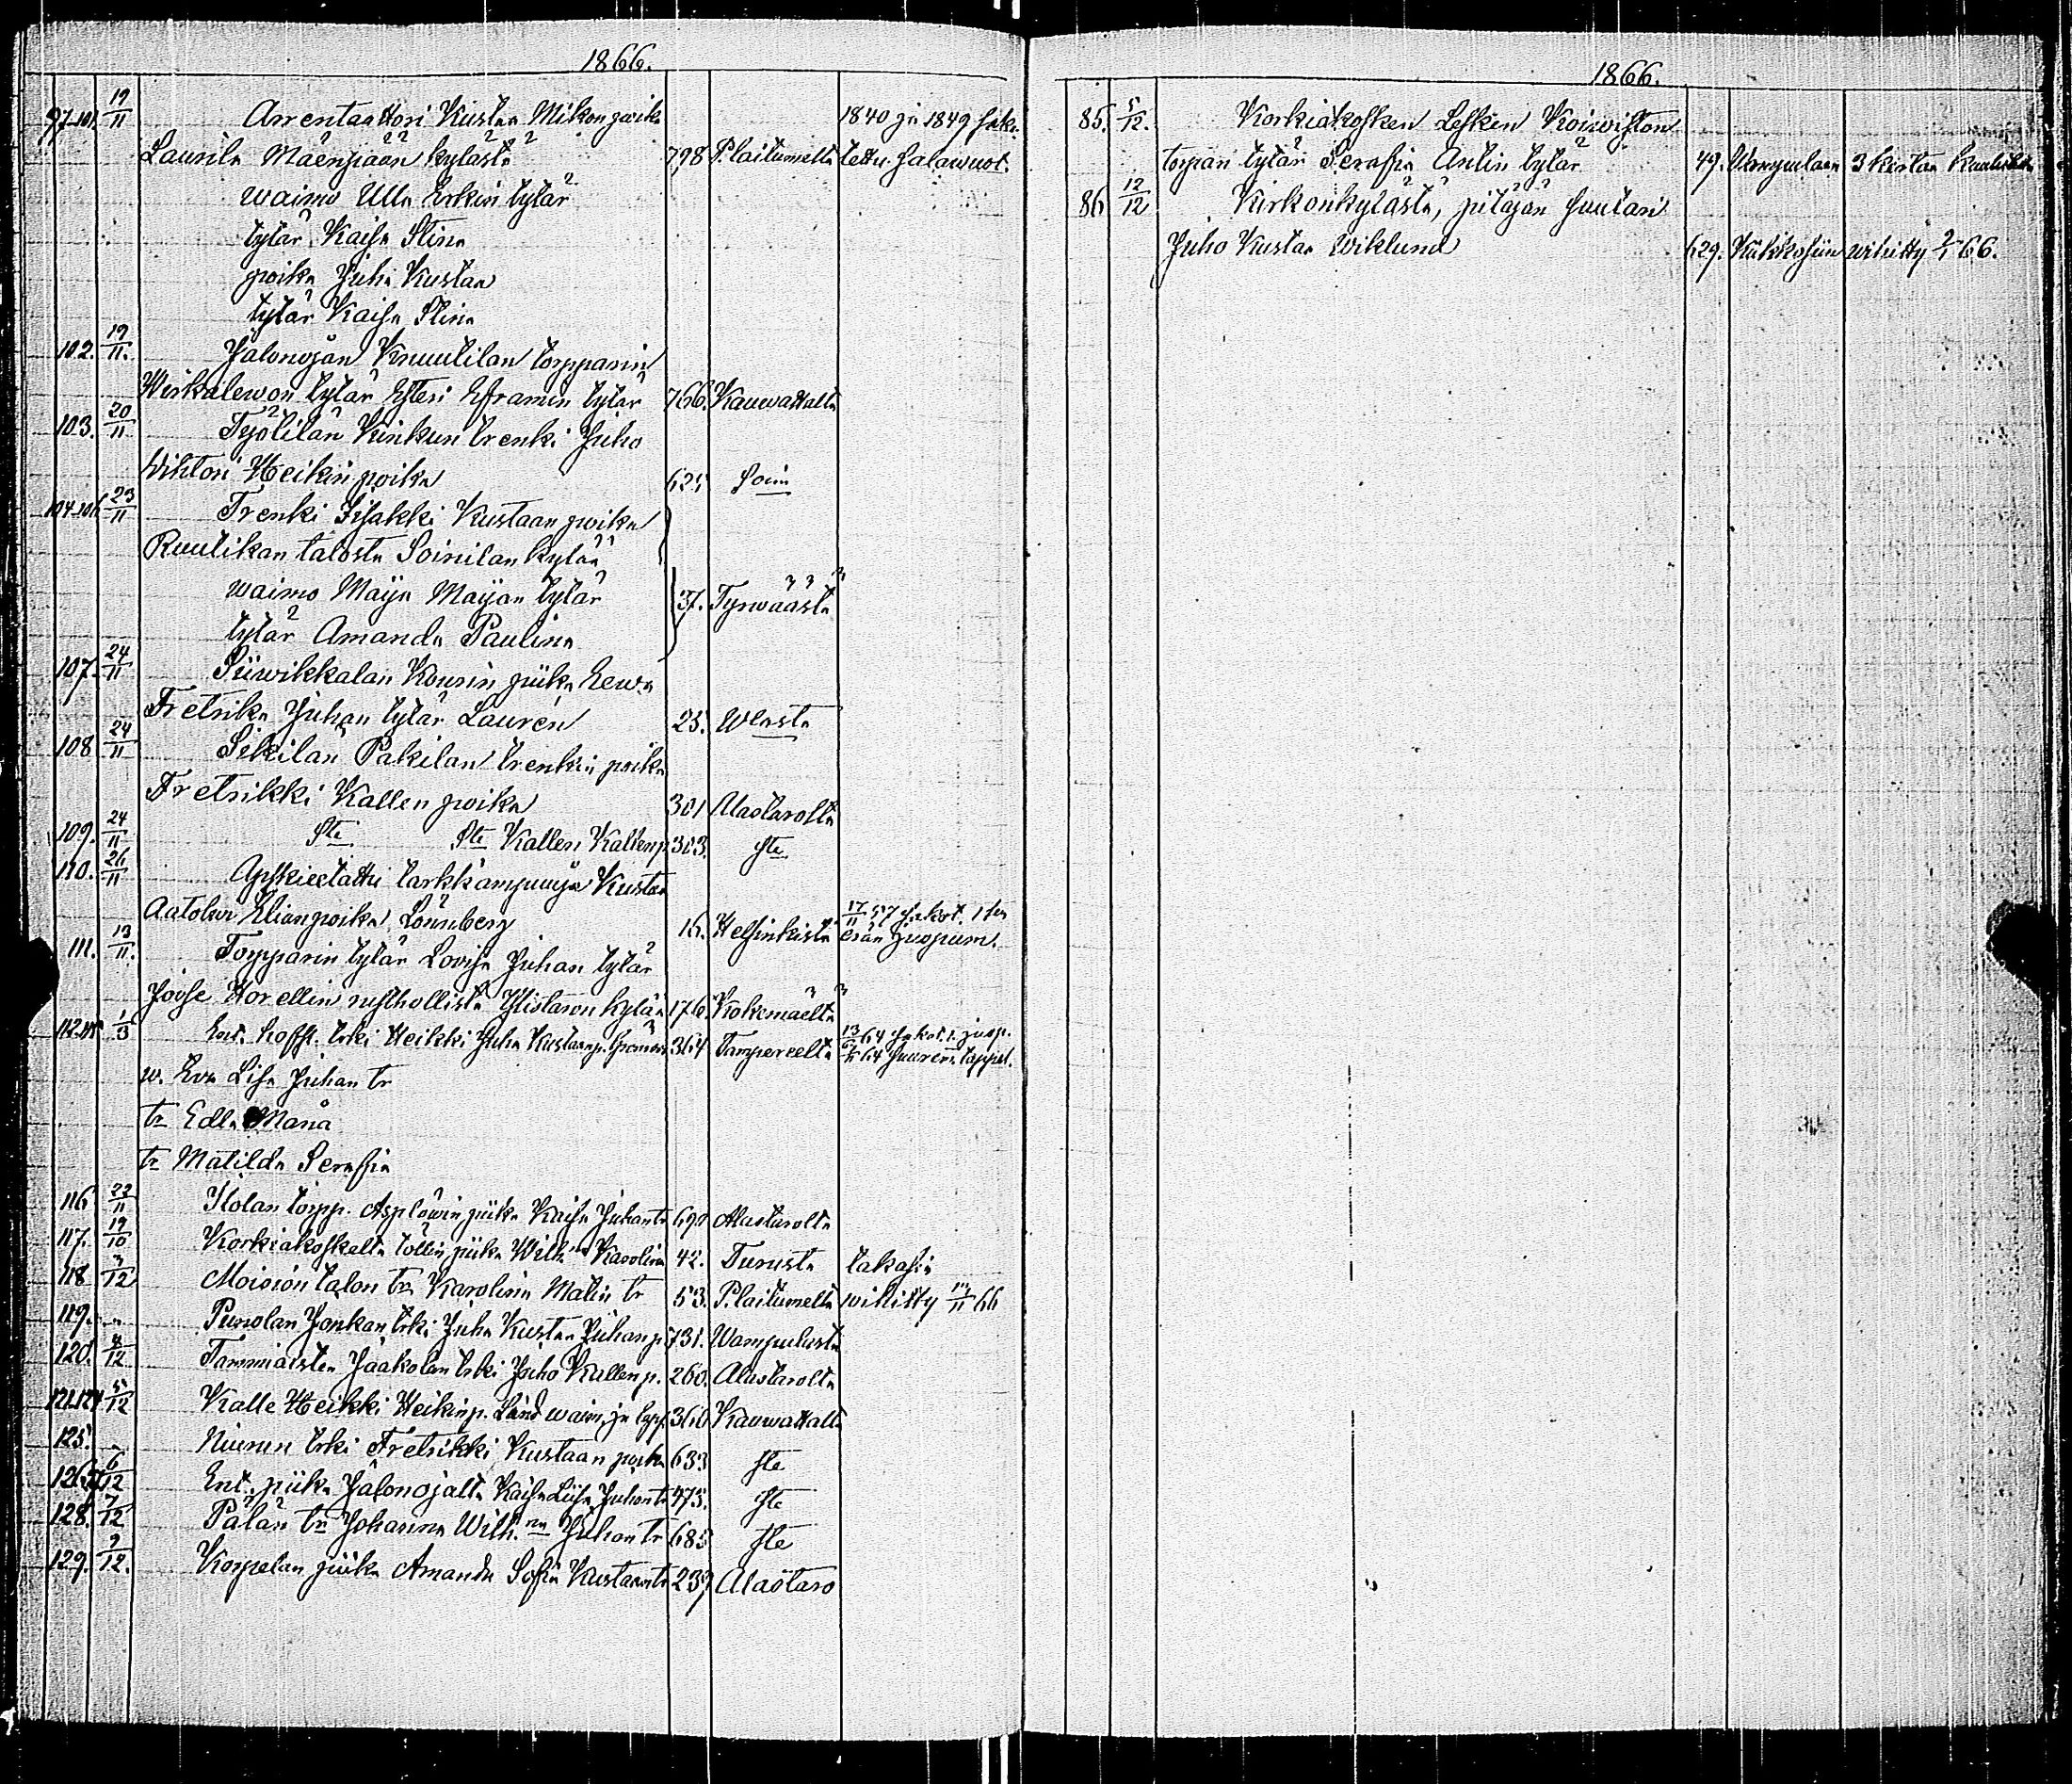 1866.
97-101. 19/11 Arrentaattori Kustaa Mikonpoika 1840 ja 1849 sako-
Laurila Mäenpään kylästä 798 P.laitumelta tettu salawuot.
waimo Ulla Erkin tytär
tytär Kaisa Stina
poika Juha Kustaa
tytär Kaisa Stina
102. 19/11. Jalonojan Knuutilan torpparin
tytär Esteri Eframin tytär 766. Kauwattalta
103. 20/11 Työtilän Kinkun trenki Juho
Wihtori Heikinpoika 625 Soini
104-106 23/11 Trenki Isakki Kustaanpoika
Ruutikan talosta Soinilan kylää
waimo Maija Maijan tytär 37. Tyrwäästä
tytär Amanda Paulina
107. 24/11 Siiwikkalan Kounin piika Eewa
Fretrika Juhan tytär Laurén 25. Wlasta
108 24/11 Sikilän Pakilan trenkin poika
Fretrikki Kallen poika 301 Alastarolta
109. 24/11 Ste Ste Kalleri Kallenp. 303. ste
110. 26/11 Apskieetattu tarkkampuuja Kustaa
Aatolwi Elianpoika Lönnberg 16. Helsinkistä 17/11 57 sakot. 1 ker. juopum.
111. 13/11. Torpparin tytär Lovisa Juhan tytär
Joose Horellin rusthollista Ylistaron kylää 176. Kokemäeltä
112-115 1/3 Ent. hofsl. trki Heikki Juha Kustaanp. 364 Tampereelta 13/6 64 sakot. 1. juop.
w. Eva Lisa Juhan tr
tr Edla Maria
tr Matilda Serafia
116 22/11 Ilolan torpp. Asplöwin piika Kaisa Juhan tr 690 Alastarolta
117. 19/10 Korkiakoskelta töllin piika Wilh.na Karolina 42. Turusta takasin
118 3/12 Moision talon tr. Karolina Matin tr 53. P.laitumelta wihitty 11/11 66
119. " Punolan Jonkan trki Juha Kustaa Juhan p. 731. Wampulasta
120. 4/12 Tammiaisten Jaakolan trki Juho Kallen p. 260. Alastarolta
121-124 5/12 Kalle Heikki Heikinp. Lind waim. ja laps. 366 Kauwattalta
125. " Niuran trki Fretrikki Kustaan poika 633 ste
126-127 6/12 Ent. piika Jalonojalta Kaisa Liisa Juhan tr 775. ste
128. 7/12 Pälän tr Johanna Wilh.na Juhan tr 685 ste
129. 9/12. Korpelan piika Amanda Sofia Kustaan tr 239 Alastaro
1866.
85. 5/12. Korkiakosken Lesken Koiwiston
torpari tytär Serafia Antin tytär 49. Wampulaan 3 kertaa kuulutettu
86 12/12 Kirkonkylästä, pitäjän suutari
Juho Kustaa Wiklund 629. Kiikkosiin wihitty 2/1 66.